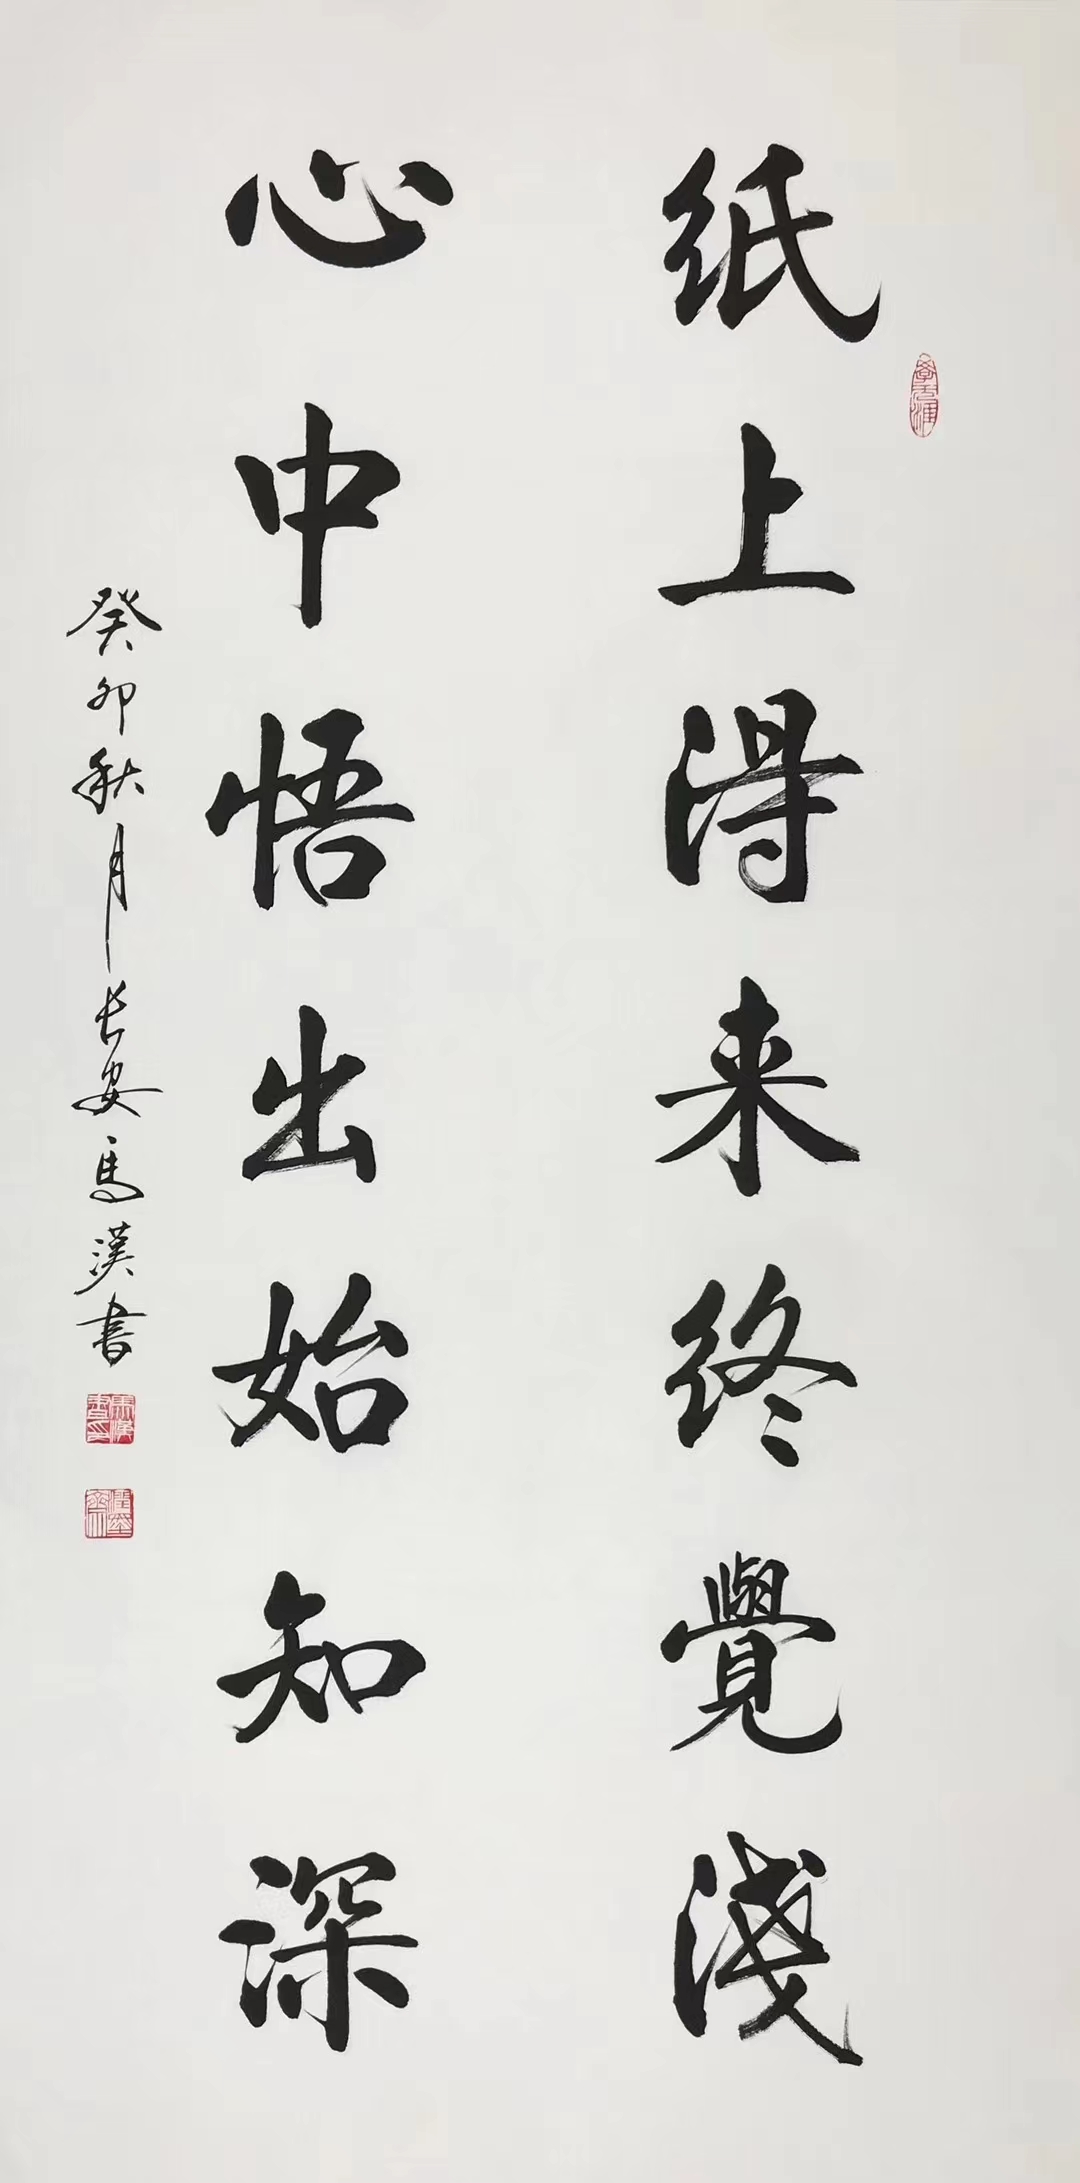 纸上得来终覺淺
心中悟出始知深
癸卯秋月长安馬漢書